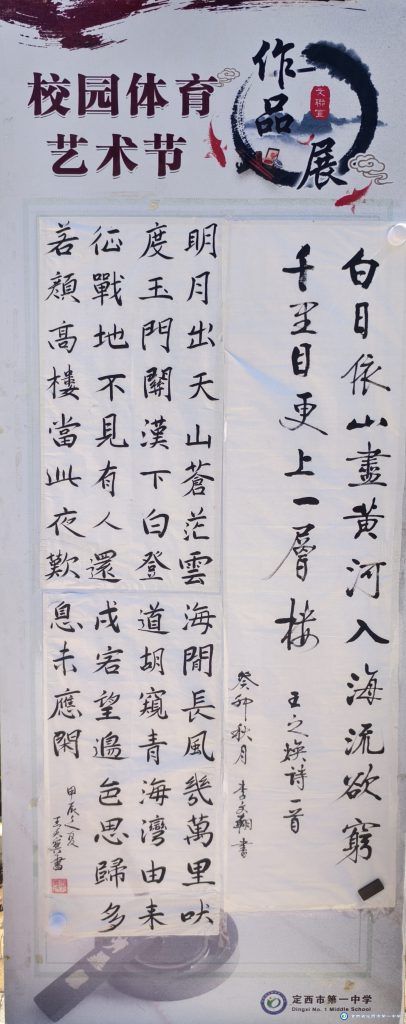 校园体育
艺术节
作品展
白日依山盡黄河入海流欲窮
千里目更上一層楼
王之焕詩一首
癸卯秋月 李文翱書
明月出天山蒼茫雲海間長風幾萬里吹
度玉門關漢下白登道胡窺青海灣由来
征戰地不見有人還戍客望邊色思歸多
苦顏高樓當此夜歎息未應閑
甲辰之夏
定西市第一中学
Dingxi No. 1 Middle School